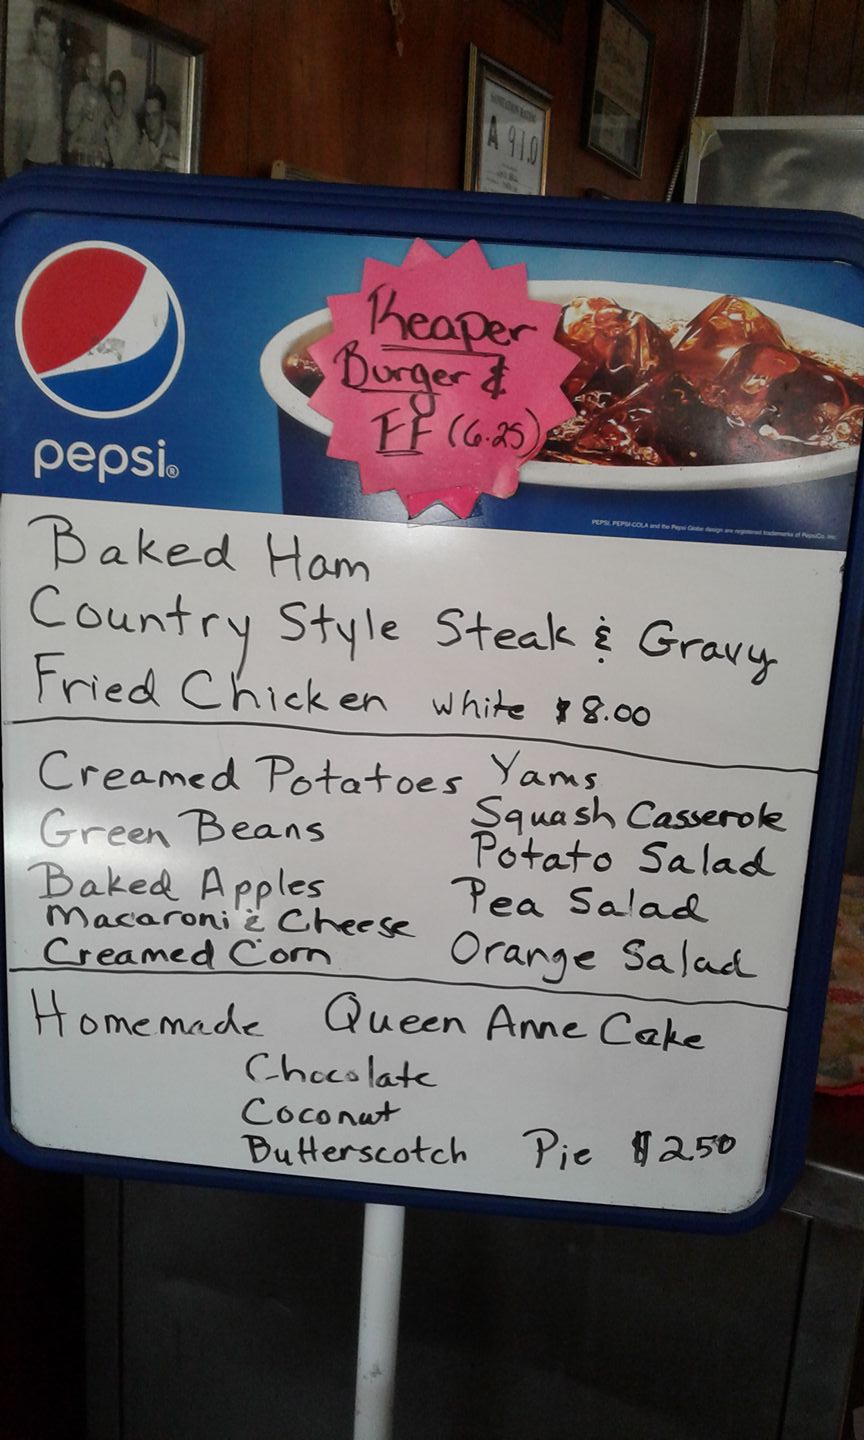 SANITATION RATING
A 97.0
pepsi®
Reaper
Burger &
FF (6.25)
PEPSI, PEPSI-COLA and the Pepsi Globe design are registered trademarks of PepsiCo, Inc.
Baked Ham
Country Style Steak & Gravy
Fried Chicken white $8.00
Creamed Potatoes
Green Beans
Baked Apples
Macaroni & Cheese
Creamed Corn
Yams
Squash Casserole
Potato Salad
Pea Salad
Orange Salad
Homemade Queen Anne Cake
Chocolate
Coconut
Butterscotch Pie $2.50